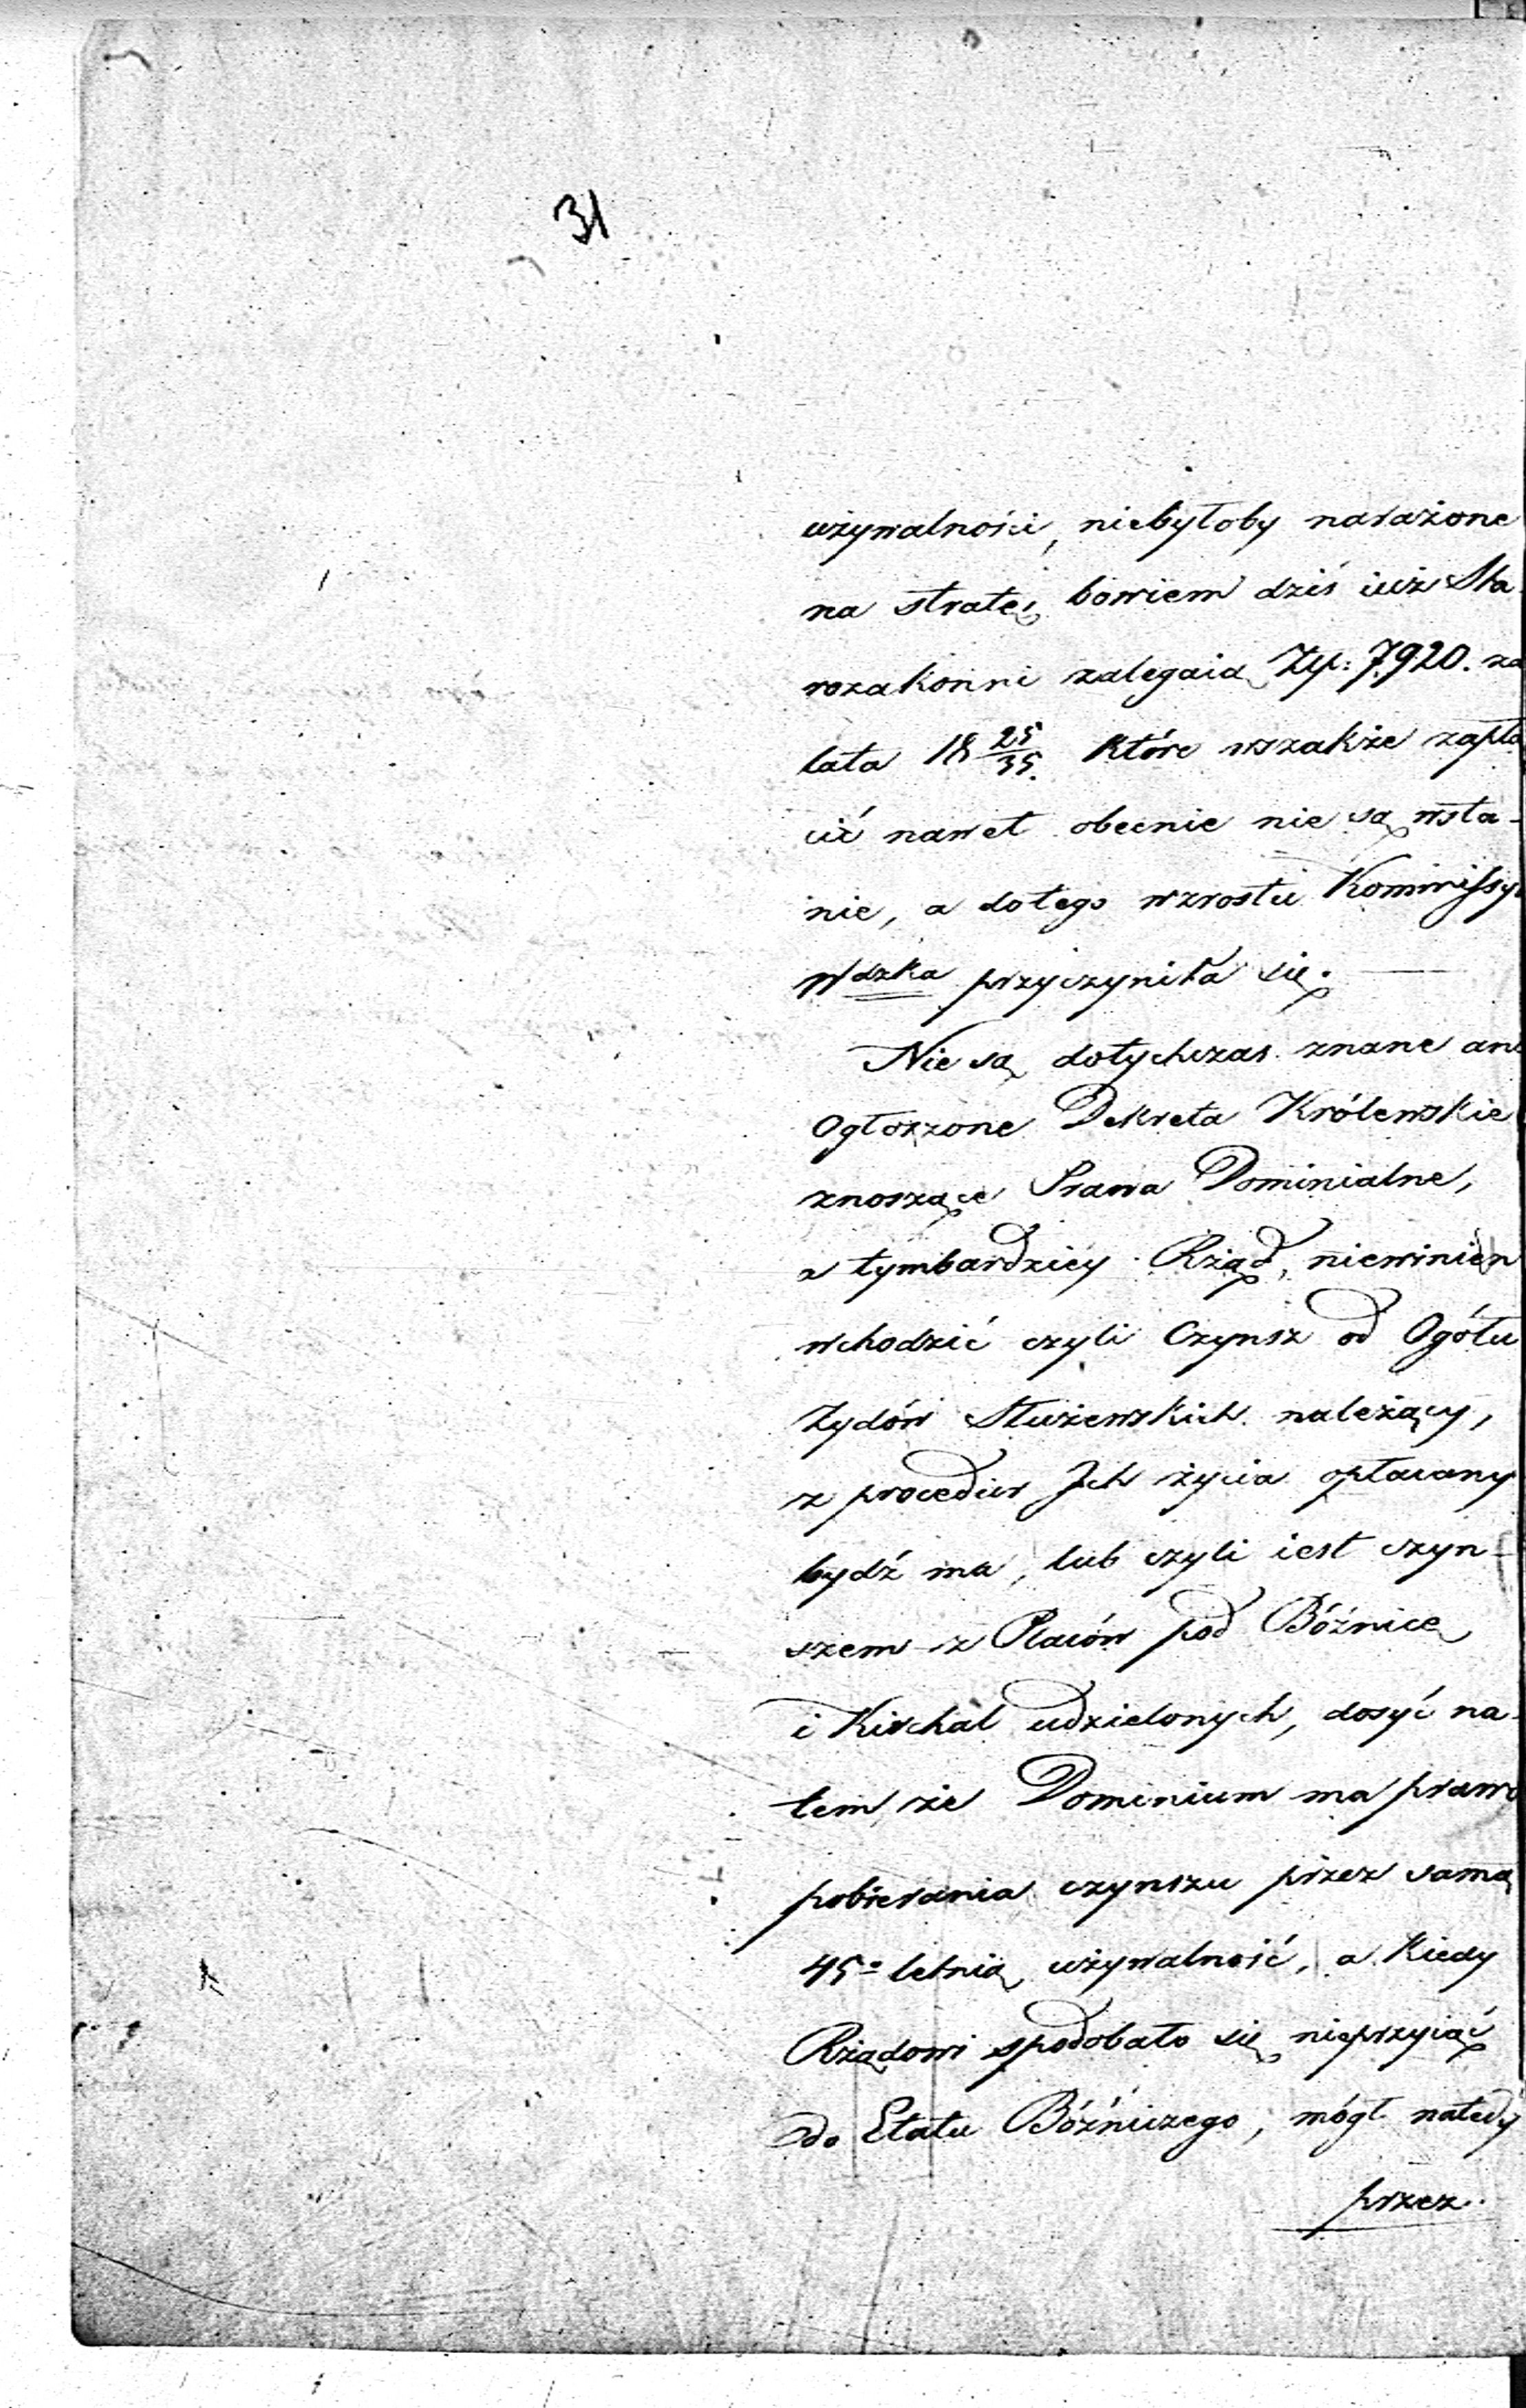 31
używalności, niebyłoby narażone
na stratę, bowiem dziś iuż Sta
rozakonni zalegaią Złp: 7,920. za
lata 18 25/35. które wszakże zapła
cić nawet obecnie nie są wsta-
nie, a dotego wzrostu Kommissya
Wdzka przyczyniła się.
Nie są dotychczas znane ani
Ogłoszone Dekreta Królewskie
znoszące Prawa Dominialne,
a tymbardziey Rząd, niewinien
wchodzić czyli Czynsz od Ogółu
Żydów Służewskich należący,
z procedur Ich życia opłacany
bydź ma, lub czyli iest czyn-
szem z Placów pod Bóźnicę
i Kirchał udzielonych, dosyć na
tem, że Dominium ma prawo
pobierania czynszu przez samą
45-letnią używalność, a kiedy
Rządowi spodobało się nieprzyiąć
do Etatu Bóźniczego, mógł natedy
przez